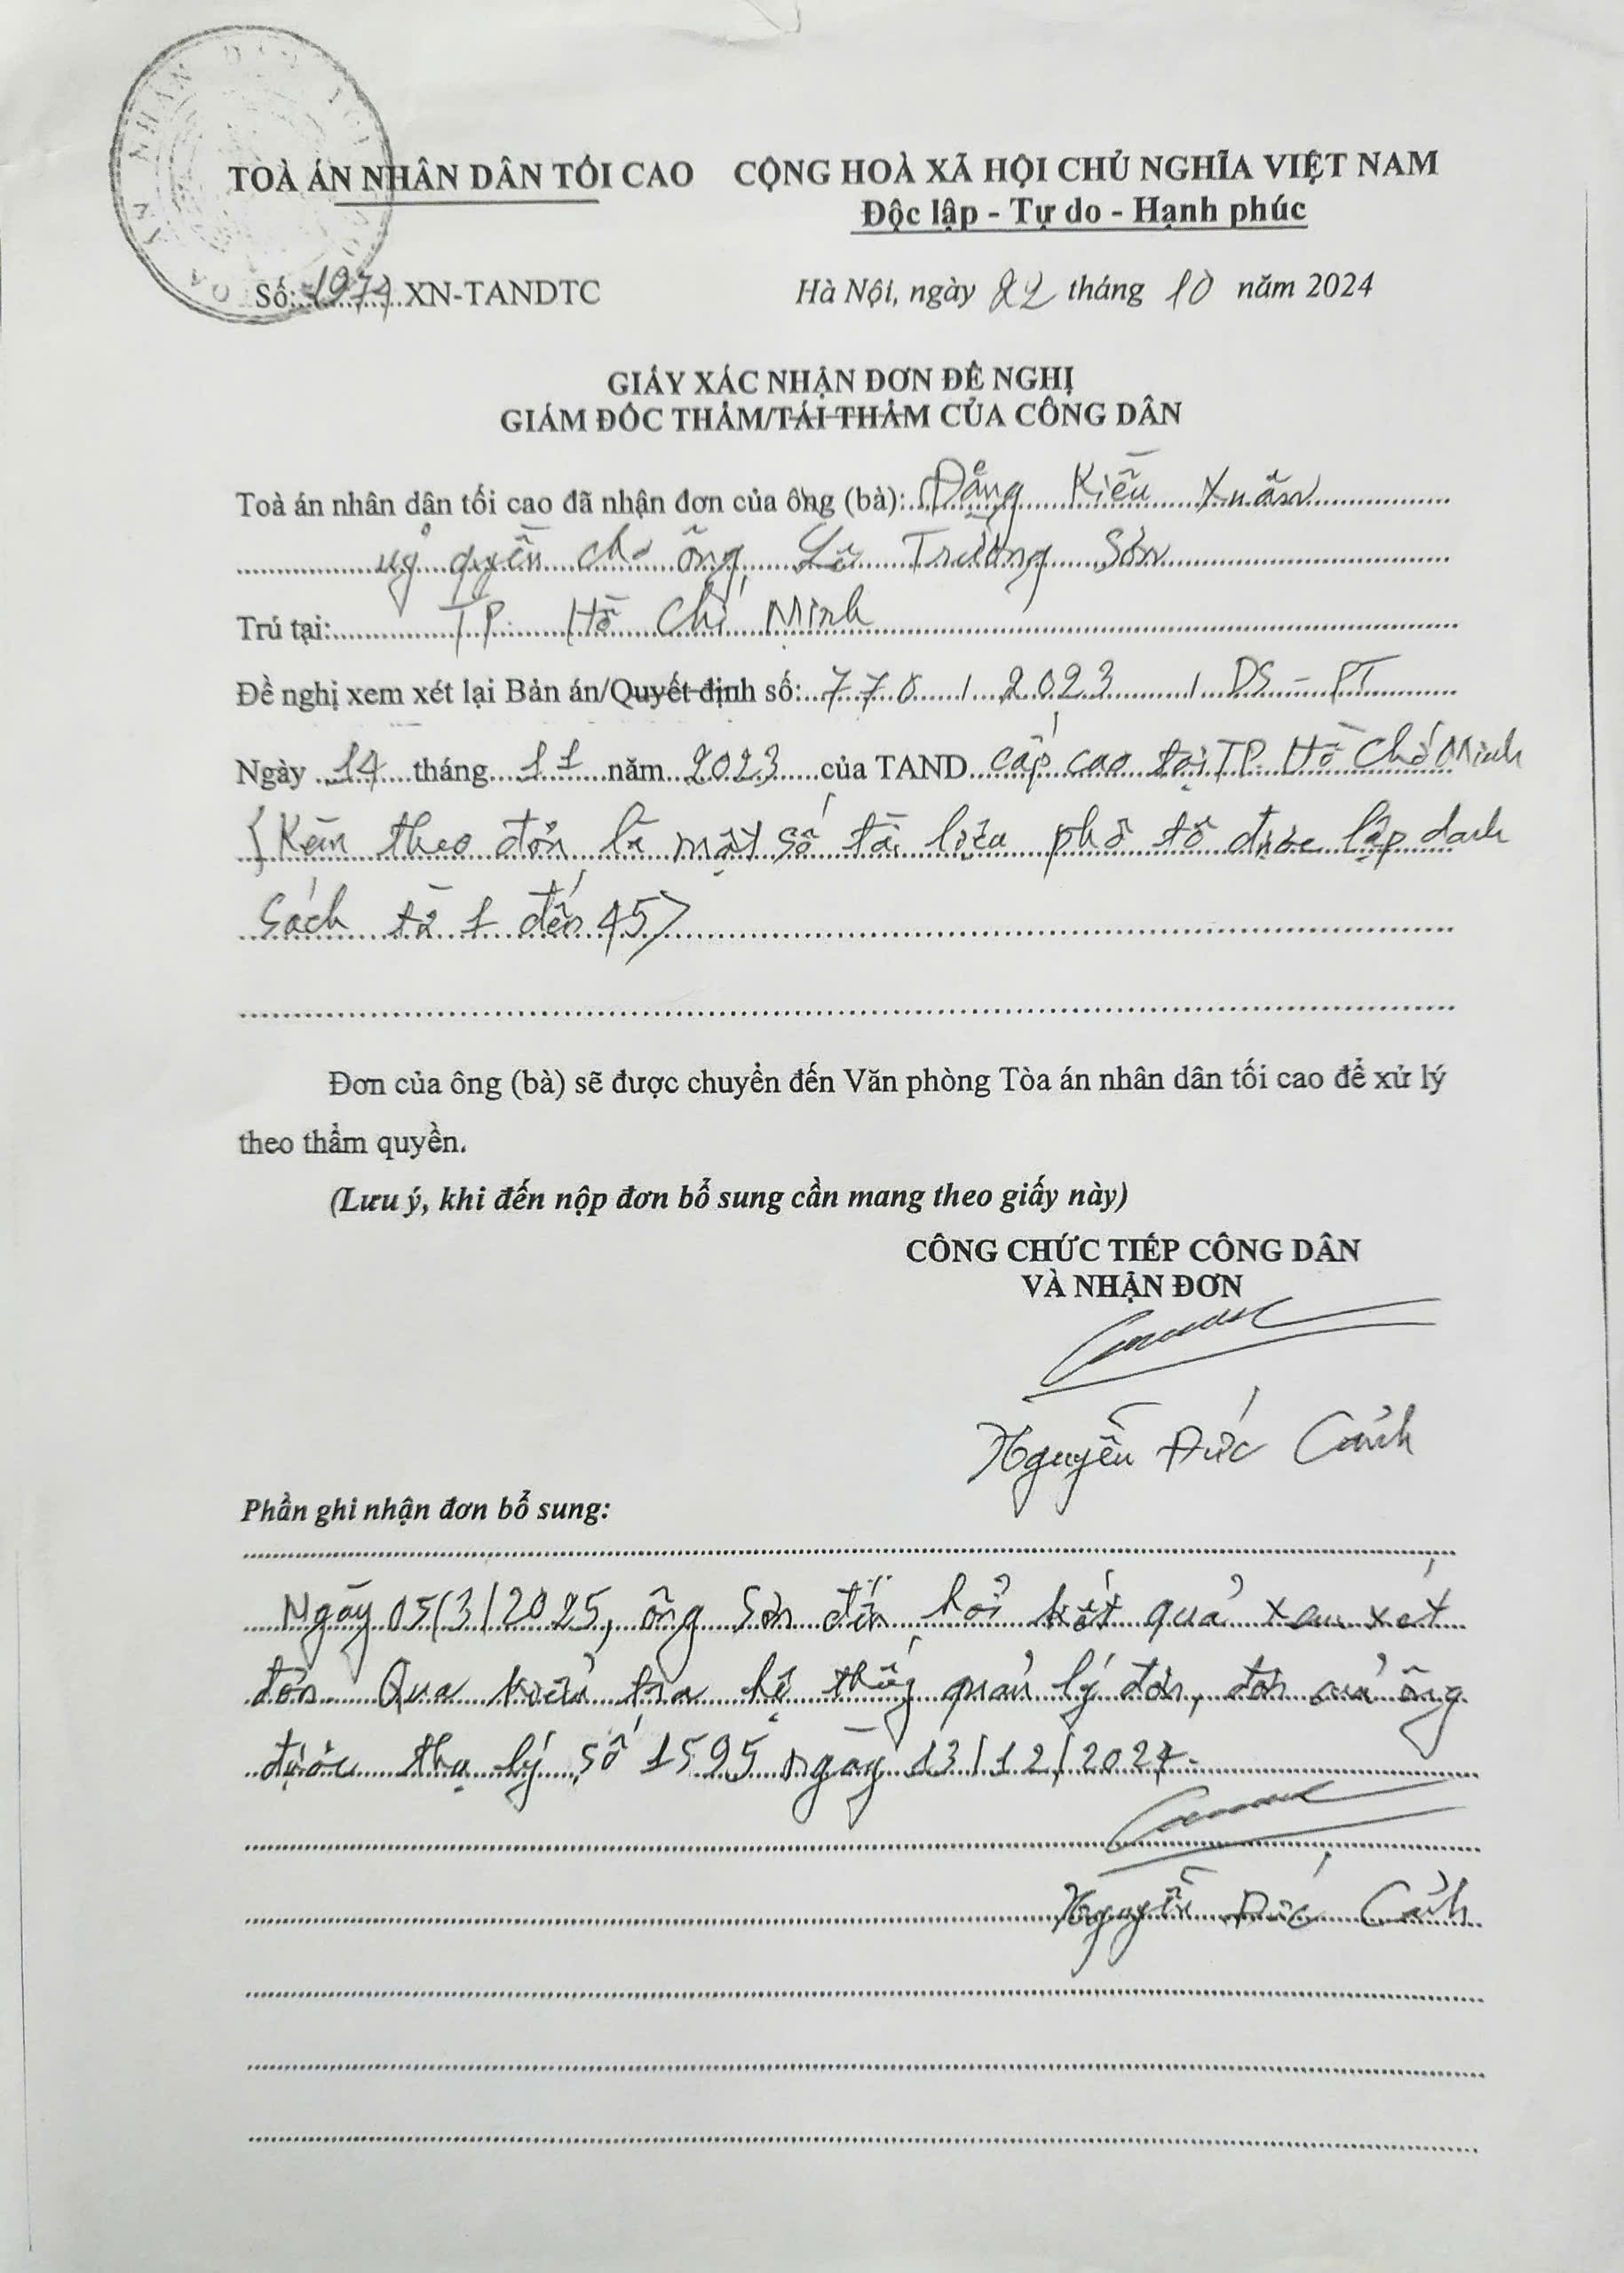 TOÀ ÁN NHÂN DÂN TỐI CAO
CỘNG HOÀ XÃ HỘI CHỦ NGHĨA VIỆT NAM
Độc lập - Tự do - Hạnh phúc
Số: XN-TANDTC
Hà Nội, ngày 22 tháng 10 năm 2024
GIẤY XÁC NHẬN ĐƠN ĐỀ NGHỊ
GIÁM ĐỐC THẨM/TÁI THẨM CỦA CÔNG DÂN
Toà án nhân dân tối cao đã nhận đơn của ông (bà): Đặng Kiều Xuân
uỷ quyền cho ông Lữ Trường Sơn
Trú tại: TP. Hồ Chí Minh
Đề nghị xem xét lại Bản án/Quyết định số: 770 / 2023 / DS - PT
Ngày 14 tháng 11 năm 2023 của TAND cấp cao tại TP. Hồ Chí Minh
(Kèm theo đơn là một số tài liệu phô tô được lập danh
sách từ 1 đến 45)
Đơn của ông (bà) sẽ được chuyển đến Văn phòng Tòa án nhân dân tối cao để xử lý
theo thẩm quyền.
(Lưu ý, khi đến nộp đơn bổ sung cần mang theo giấy này)
CÔNG CHỨC TIẾP CÔNG DÂN
VÀ NHẬN ĐƠN
Nguyễn Đức Cảnh
Phần ghi nhận đơn bổ sung:
Ngày 05/3/2025, ông Sơn đến hỏi kết quả xem xét
đơn Qua kiểm tra hệ thống quản lý đơn, đơn của ông
được thụ lý số 1595 ngày 13/12/2024.
Nguyễn Đức Cảnh